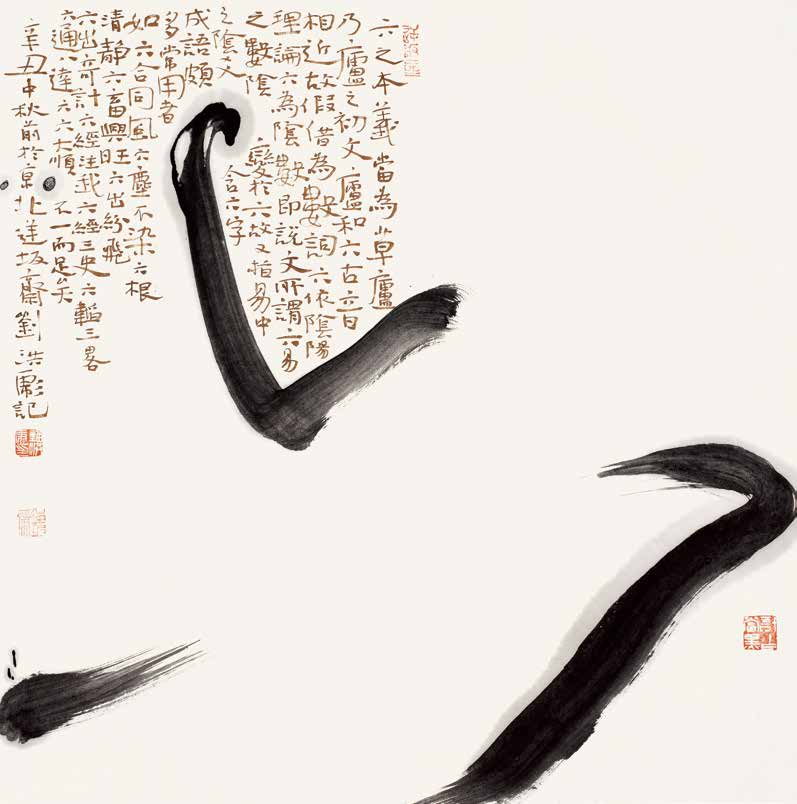 六之本義當為草廬
乃廬之初文廬和六古音
相近故假借為數詞六依陰陽
理論六為陰數即說文所謂六易
之數陰變於六故又指易中
之陰爻含六字
成語頗
多常用者
如六合同風六塵不染六根
清靜六畜興旺六出紛飛
六出奇計六經注我六經三史六韜三畧
六通六達六六大順不一而足矣
辛丑中秋前於京北坂齋劉洪彪記